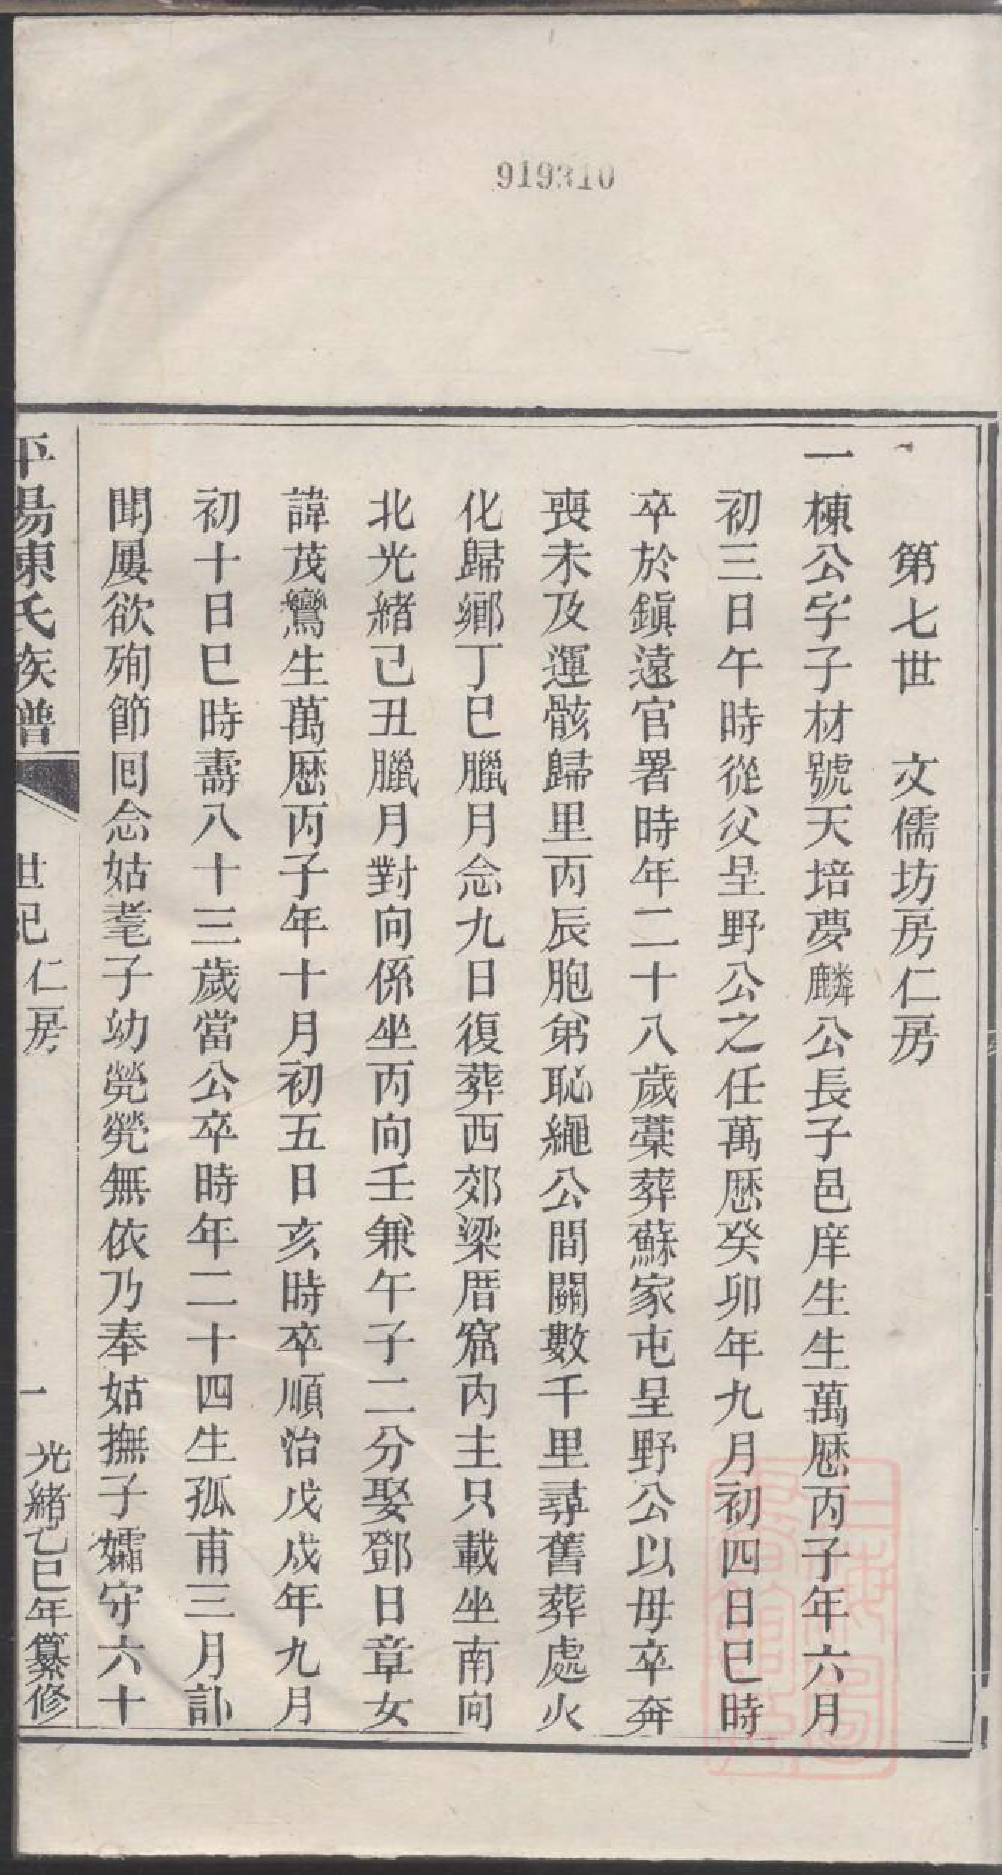 919310
第七世　文儒坊房仁房
一棟公字子材號天培夢麟公長子邑庠生生萬厯丙子年六月
初三日午時從父呈野公之任萬厯癸卯年九月初四日巳時
卒於鎭遠官署時年二十八歲藁葬蘇家屯呈野公以母卒奔
喪未及運骸歸里丙辰胞弟恥繩公間關數千里尋舊葬處火
化歸鄉丁巳臘月念九日復葬西郊梁厝窟內主只載坐南向
北光緒己丑臘月對向係坐丙向壬兼午子二分娶鄧日章女
諱茂鸞生萬厯丙子年十月初五日亥時卒順治戊戌年九月
初十日巳時壽八十三歲當公卒時年二十四生孤甫三月訃
聞屢欲殉節囘念姑耄子幼煢煢無依乃奉姑撫子孀守六十
平陽陳氏族譜　世紀　仁房　一　光緒乙巳年纂修